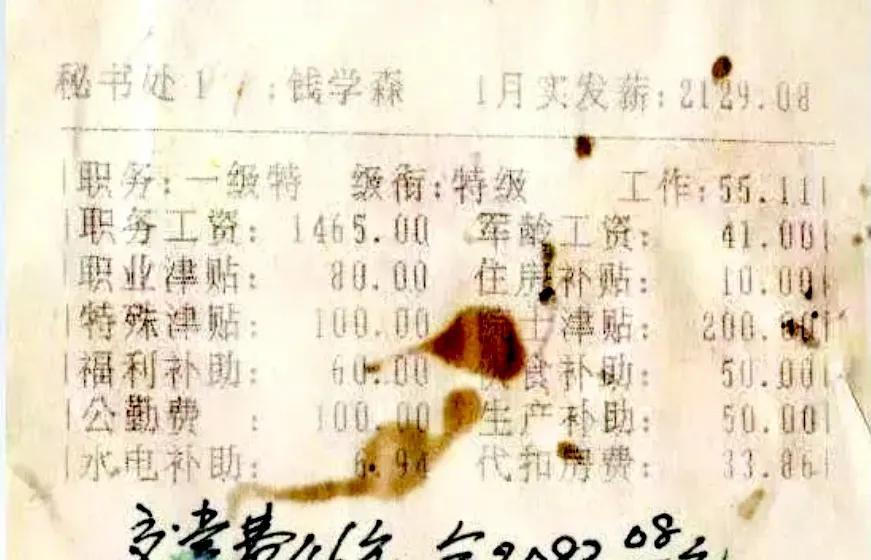 秘书处1 :钱学森 1月实发薪:2129.08
职务:一级特 级衔:特级 工作:55.11
职务工资: 1465.00 军龄工资: 41.00
职业津贴: 80.00 住房补贴: 10.00
特殊津贴: 100.00 士津贴: 200.00
福利补助: 60.00 食补助: 50.00
公勤费 : 100.00 生产补助: 50.00
水电补助: 6.94 代扣房费: 33.86
交党费46元 2083.08元